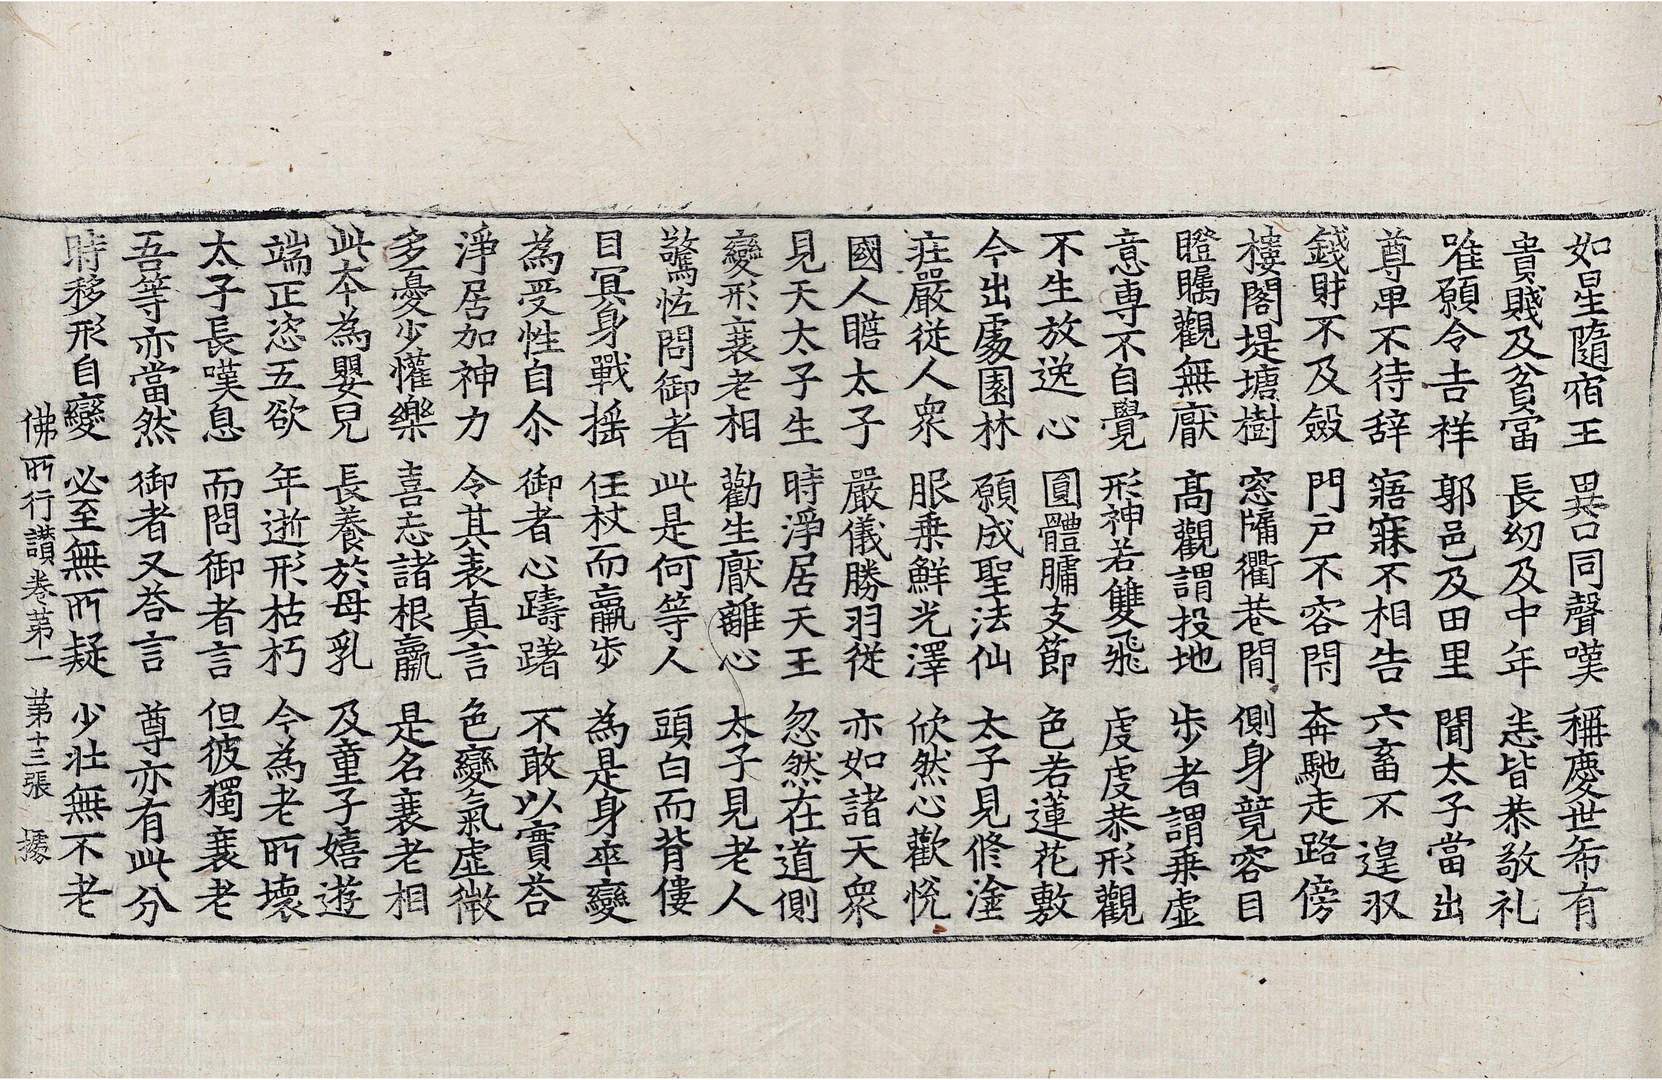 如星隨宿王 異口同聲嘆 稱慶世希有
貴賎及貧富 長幼及中年 悉皆恭敬礼
唯願令吉祥 郭邑及田里 聞太子當出
尊卑不待辞 寤寐不相告 六畜不遑収
錢財不及斂 門戶不容閇 奔馳走路傍
樓閣堤塘樹 窓牖衢巷間 側身競容目
瞪矚觀無厭 高觀謂投地 步者謂乗虛
意専不自覺 形神若雙飛 虔虔恭形觀
不生放逸心 圓體𦟛支節 色若蓮花敷
今出處園林 願成聖法仙 太子見修塗
莊嚴從人衆 服乗鮮光澤 欣然心歡悅
國人瞻太子 嚴儀勝羽從 亦如諸天衆
見天太子生 時淨居天王 忽然在道側
變形衰老相 勸生厭離心 太子見老人
驚恠問御者 此是何等人 頭白而背僂
目冥身戰搖 任杖而羸步 為是身卒變
為受性自尒 御者心躊躇 不敢以實荅
淨居加神力 令其表真言 色變氣虛微
多憂少懽樂 喜忘諸根羸 是名衰老相
此夲為嬰兒 長養於母乳 及童子嬉遊
端正恣五欲 年逝形枯朽 今為老所壞
太子長嘆息 而問御者言 但彼獨衰老
吾等亦當然 御者又荅言 尊亦有此分
時移形自變 必至無所疑 少壯無不老
佛所行讃卷第一 第十三張 㯫